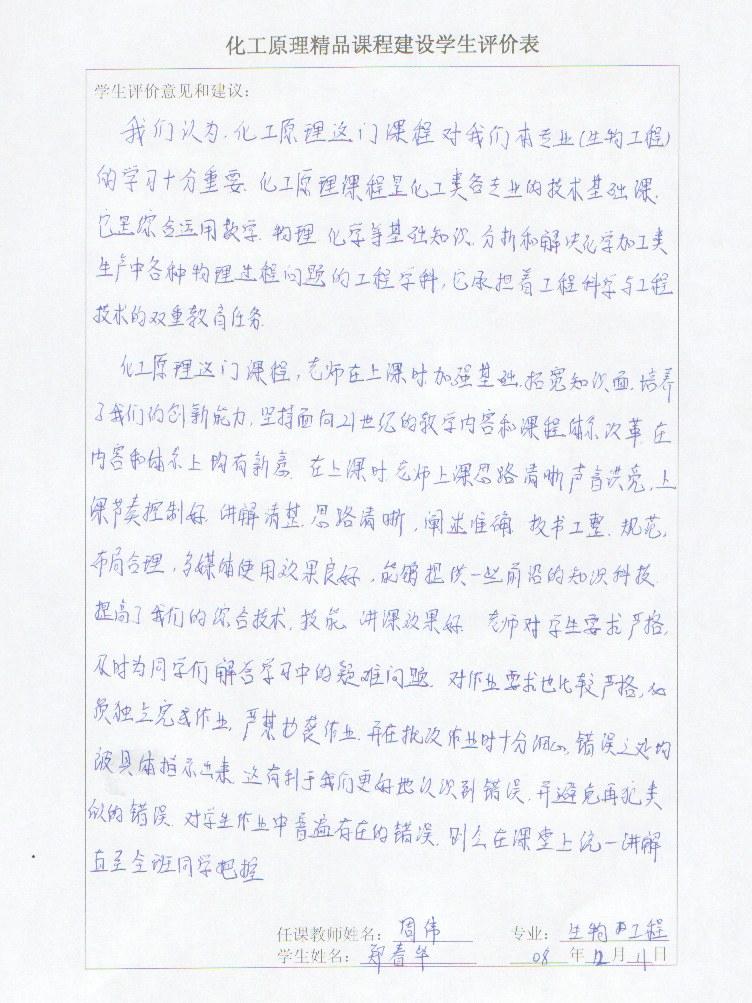 化工原理精品课程建设学生评价表
学生评价意见和建议:
我们认为,化工原理这门课程对我们本专业(生物工程)
的学习十分重要.化工原理课程是化工类各专业的技术基础课.
它是综合运用数学.物理.化学等基础知识.分析和解决化学加工类
生产中各种物理过程问题的工程学科,它承担着工程科学与工程
技术的双重教育任务.
化工原理这门课程,老师在上课时加强基础.拓宽知识面.培养
了我们的创新能力.坚持面向21世纪的教学内容和课程体系改革在
内容和体系上均有新意.在上课时老师上课思路清晰声音洪亮.上
课节奏控制好.讲解清楚.思路清晰,阐述准确.板书工整.规范,
布局合理,多媒体使用效果良好,能够提供一些前沿的知识科技.
提高了我们的综合技术.技能.讲课效果好.老师对学生要求严格,
及时为同学们解答学习中的疑难问题.对作业要求也比较严格,必
须独立完成作业,严禁抄袭作业.并在批改作业时十分细心,错误之处均
被具体指示出来.这有利于我们更好地认识到错误.并避免再犯类
似的错误.对学生作业中普遍存在的错误.则会在课堂上统一讲解
直至全班同学把握
任课教师姓名: 周伟 专业: 生物工程
学生姓名: 郑春华 08 年 12 月 11 日